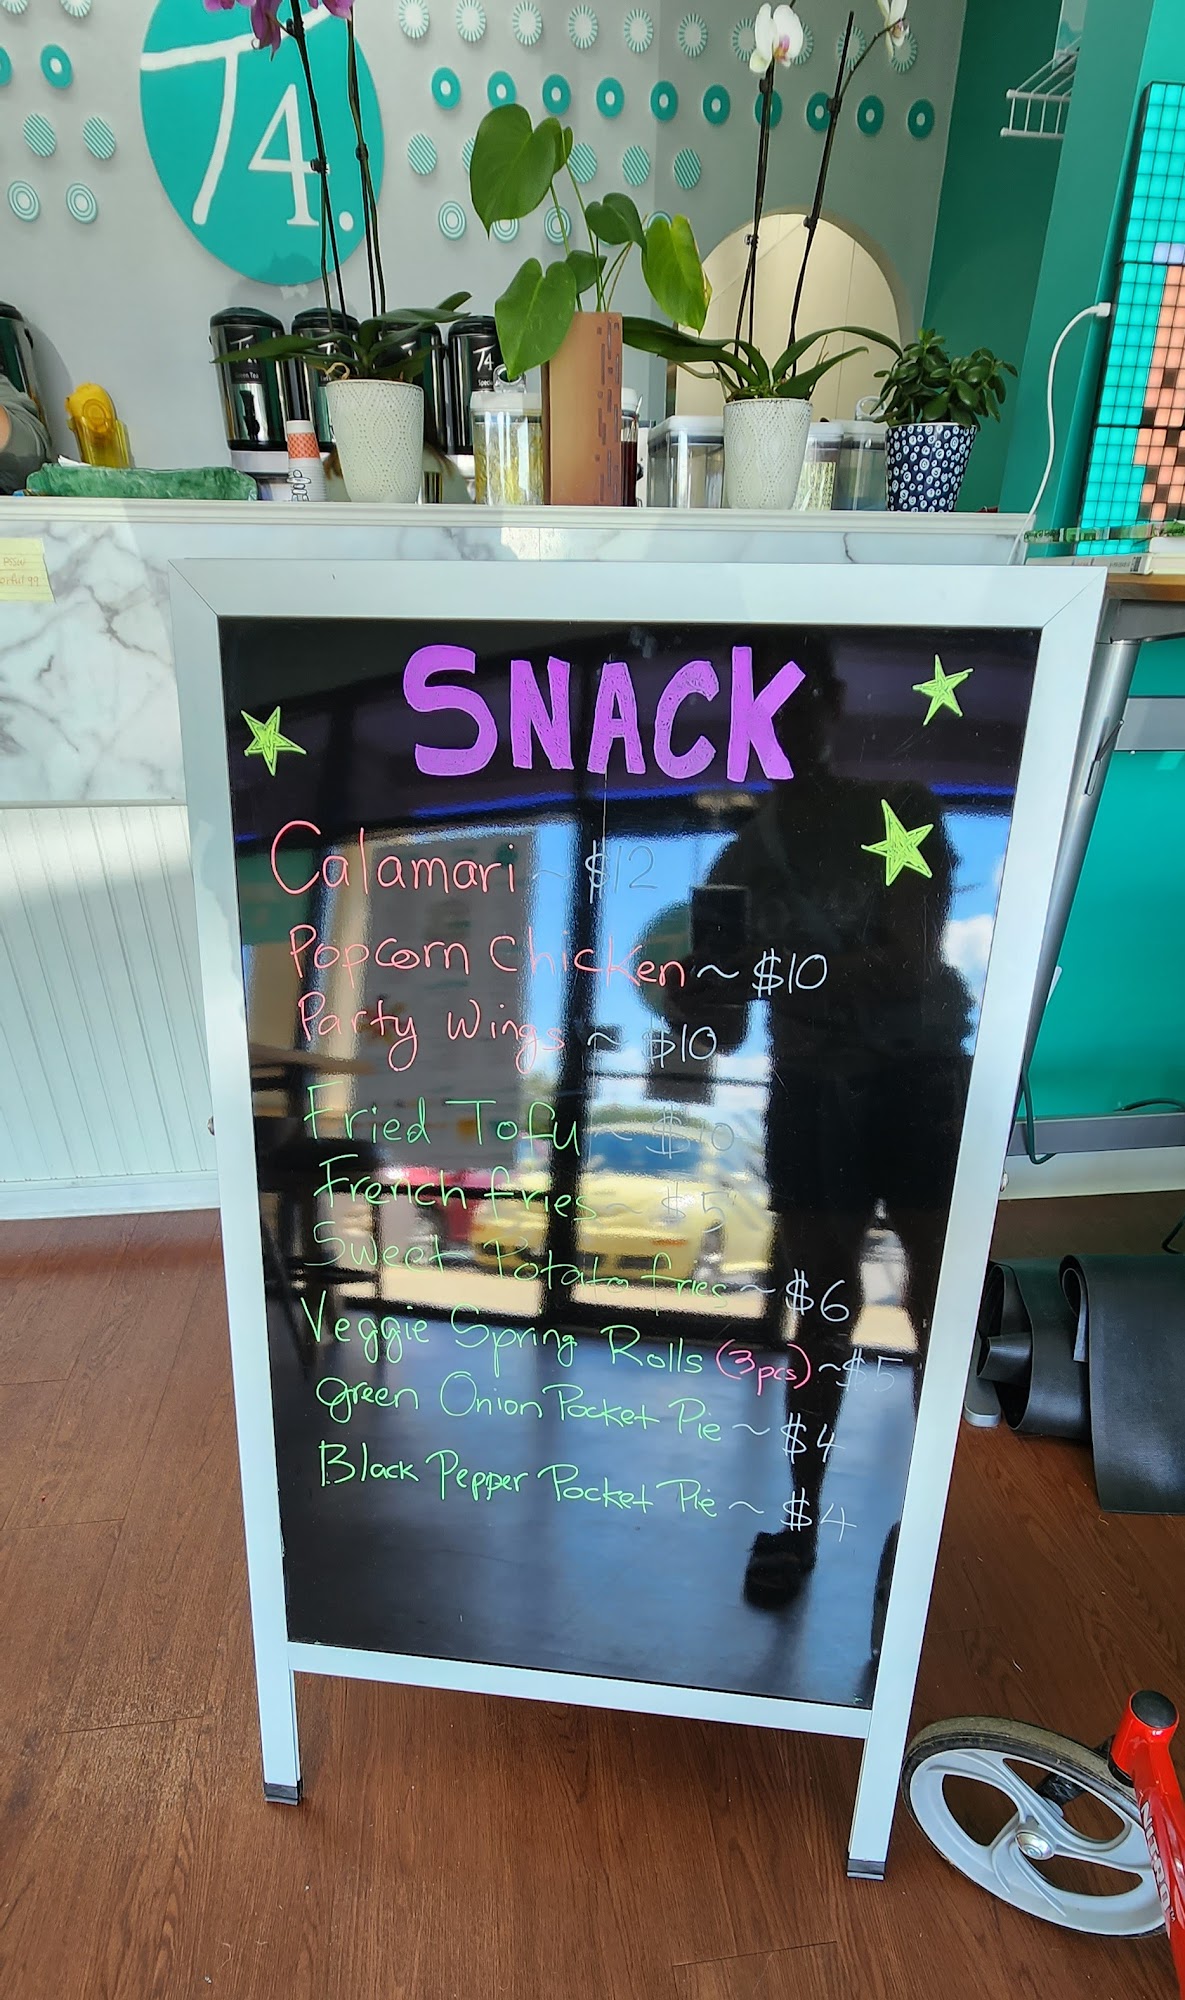 T4.
SNACK
Calamari ~ $12
Popcorn Chicken ~ $10
Party Wings ~ $10
Fried Tofu ~ $10
French fries ~ $5
Sweet Potato fries ~ $6
Veggie Spring Rolls (3pcs) ~ $5
green Onion Pocket Pie ~ $4
Black Pepper Pocket Pie ~ $4
NITRO